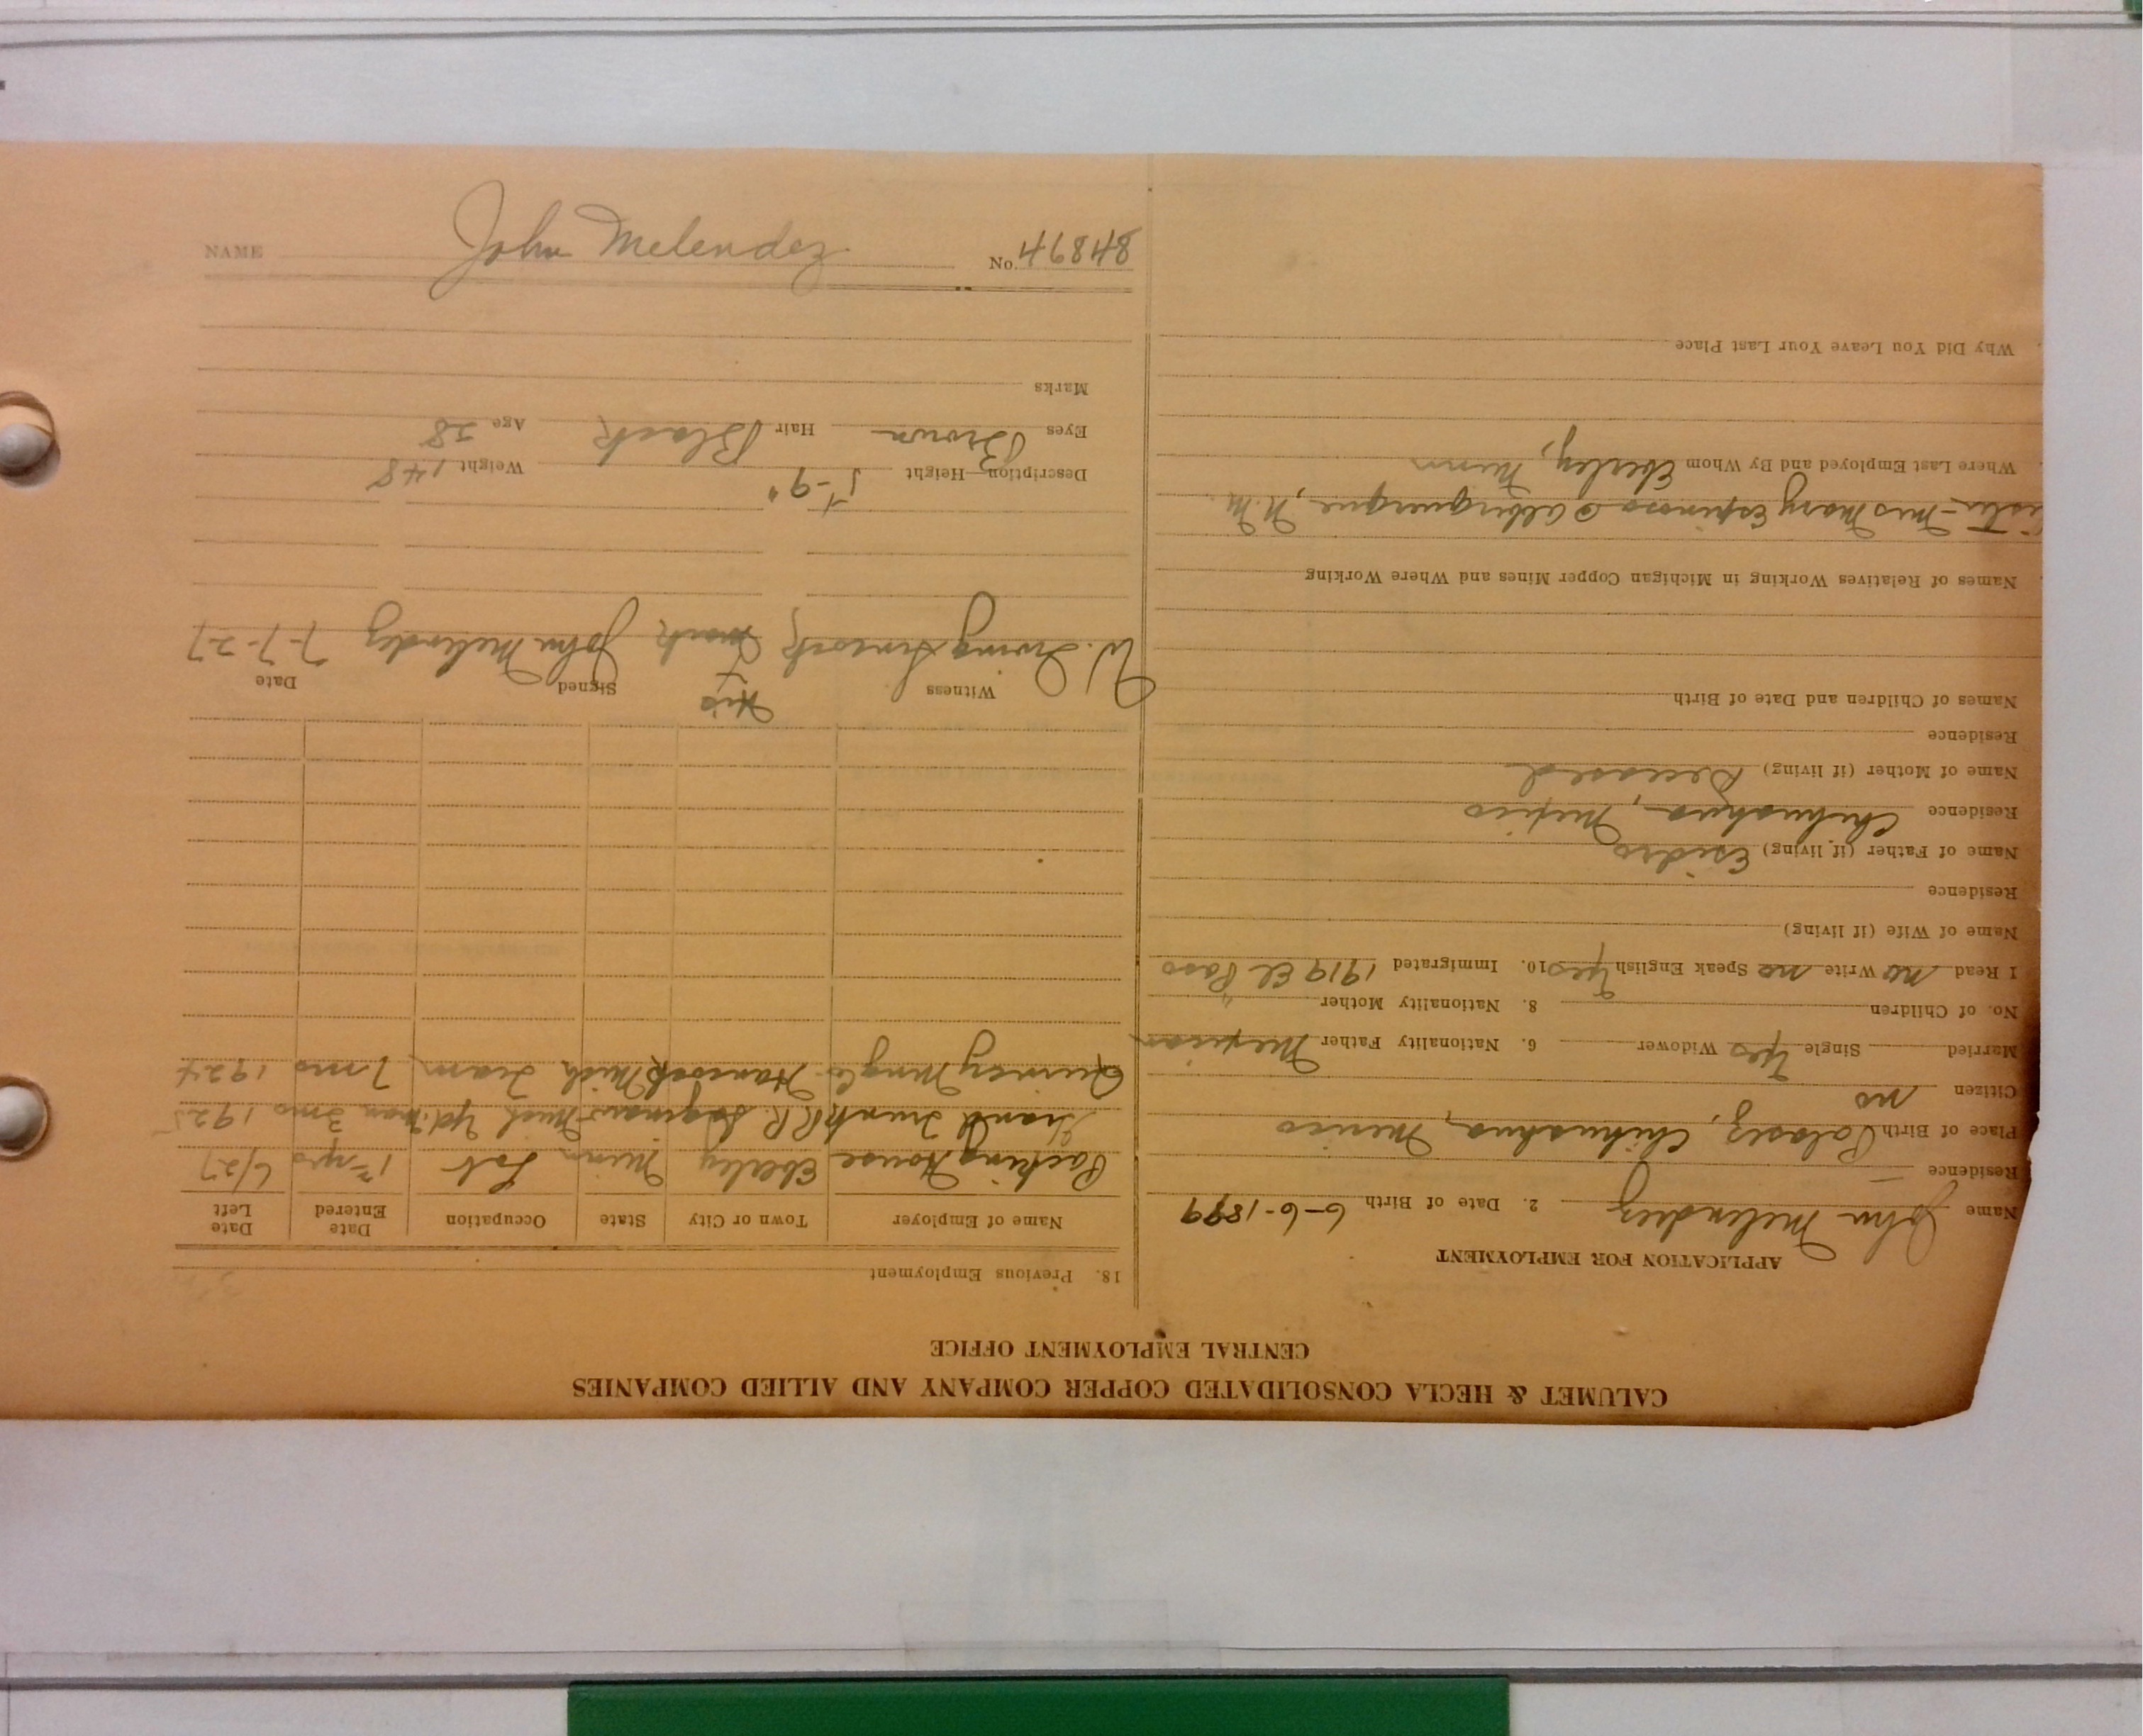 CALUMET & HECLA CONSOLIDATED COPPER COMPANY AND ALLIED COMPANIES
CENTRAL EMPLOYMENT OFFICE
APPLICATION FOR EMPLOYMENT
Name John Melendez 2. Date of Birth 6-6-1899
Residence
Place of Birth Chihuahua, Mexico
Citizen no
Married Single Yes Widower 6. Nationality Father Mexican
No. of Children 8. Nationality Mother "
I Read no Write no Speak English Yes 10. Immigrated 1919 El Paso
Name of Wife (if living)
Residence
Name of Father (if living) Esidro
Residence Chihuahua, Mexico
Name of Mother (if living) Deceased
Residence
Names of Children and Date of Birth
Names of Relatives Working in Michigan Copper Mines and Where Working
Mrs Mary Espinosa @ Alberquerque, N.M.
Where Last Employed and By Whom Eberley, Minn
Why Did You Leave Your Last Place
18. Previous Employment
Name of Employer Town or City State Occupation Date Entered Date Left
Packing House Eberley Minn Lab 6/27
Grand Trunk R.R. Saginaw Mich Yd. man 3 mo 1925
Quincy Mng Co. Hancock Mich Tram 7 mo 1924
Witness His Signed Date
W. Irving mark John Melendez 7-7-27
Description—Height 5'-9" Weight 148
Eyes Brown Hair Black Age 28
Marks
NAME John Melendez No. 84894